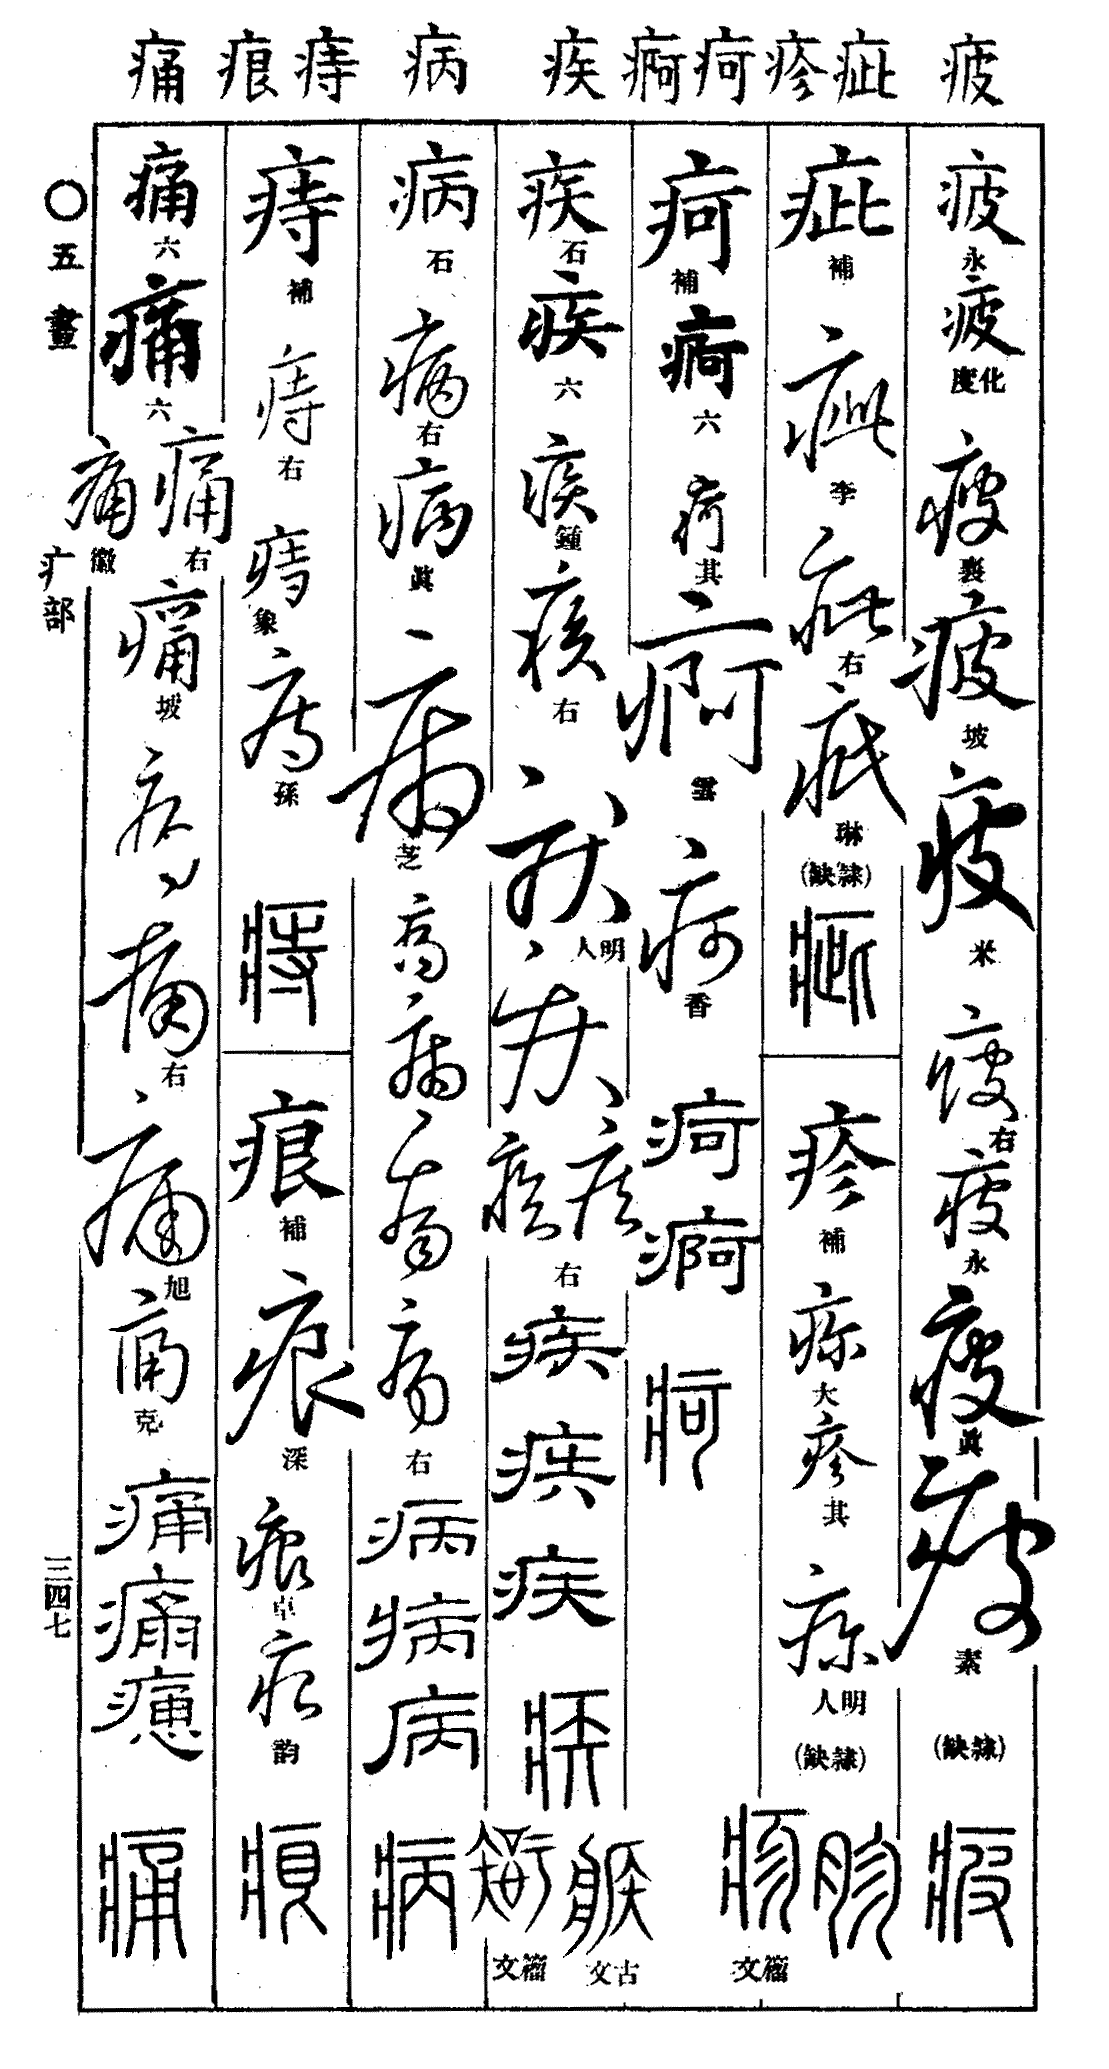 疲 疵 疹 疴 痾 疾 病 痔 痕 痛
疲 永
疲 化度
疲 裏
疲 坡
疲 米
疲 右
疲 永
疲 眞
疲 素
(隸缺)
疲
疵 補
疵 李
疵 右
疵 琳
(隸缺)
疵
疹 補
疹 大
疹 其
疹 明人
(隸缺)
疹 籀文
疴 補
痾 六
疴 其
痾 雲
疴 香
疴
痾
疴
疾 石
疾 六
疾 鍾
疾 右
疾 明人
疾
疾 疾 右
疾
疾
疾
疾
古文 籀文
病 石
病 右
病 眞
病 芝
病
病
病
病 右
病
病
病
病
痔 補
痔 右
痔 象
痔 孫
痔
痕 補
痕 深
痕 卓
痕 韵
痕
痛 六
痛 六
痛 右
痛 徽
痛 坡
痛
痛 右
痛 旭
痛 克
痛
痛
痛
〇五畫
疒部
三四七